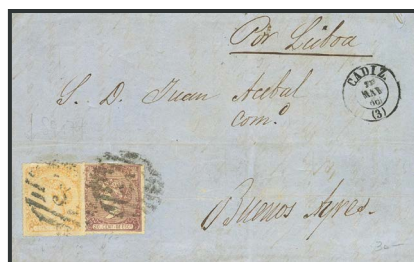 Por Lisboa
CADIZ
MAR
(3)
S. D. Juan Acebal
Com.º
Buenos Ayres.